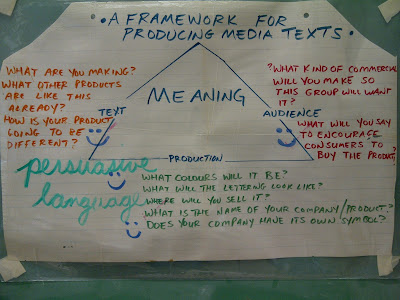 • A FRAMEWORK FOR
PRODUCING MEDIA TEXTS •
WHAT ARE YOU MAKING?
WHAT OTHER PRODUCTS
ARE LIKE THIS
ALREADY?
HOW IS YOUR PRODUCT
GOING TO BE
DIFFERENT?
TEXT
MEANING
AUDIENCE
WHAT KIND OF COMMERCIAL
WILL YOU MAKE SO
THIS GROUP WILL WANT
IT?
WHAT WILL YOU SAY
TO ENCOURAGE
CONSUMERS TO
BUY THE PRODUCT?
PRODUCTION
persuasive
language
WHAT COLOURS WILL IT BE?
WHAT WILL THE LETTERING LOOK LIKE?
WHERE WILL YOU SELL IT?
WHAT IS THE NAME OF YOUR COMPANY/PRODUCT?
DOES YOUR COMPANY HAVE ITS OWN SYMBOL?